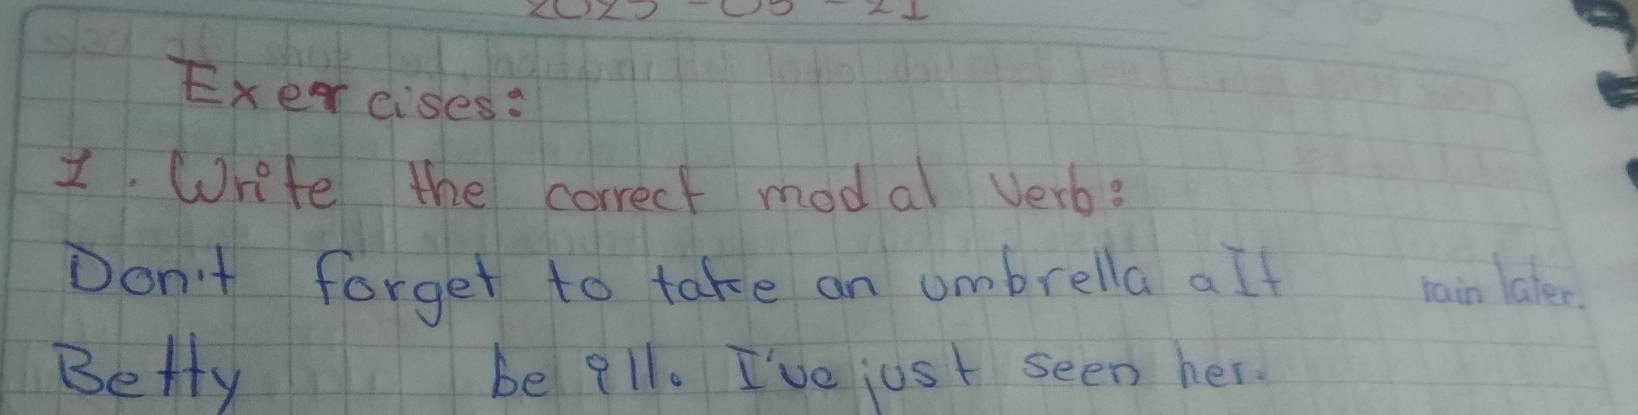 Exercises:
1. Write the correct modal verb:
Don't forget to take an umbrella a It rain later.
Betty be ill. I've just seen her.